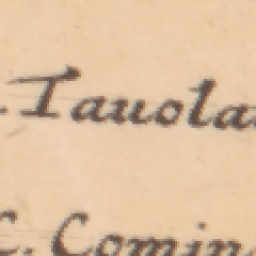 . Tauola
C. Comin